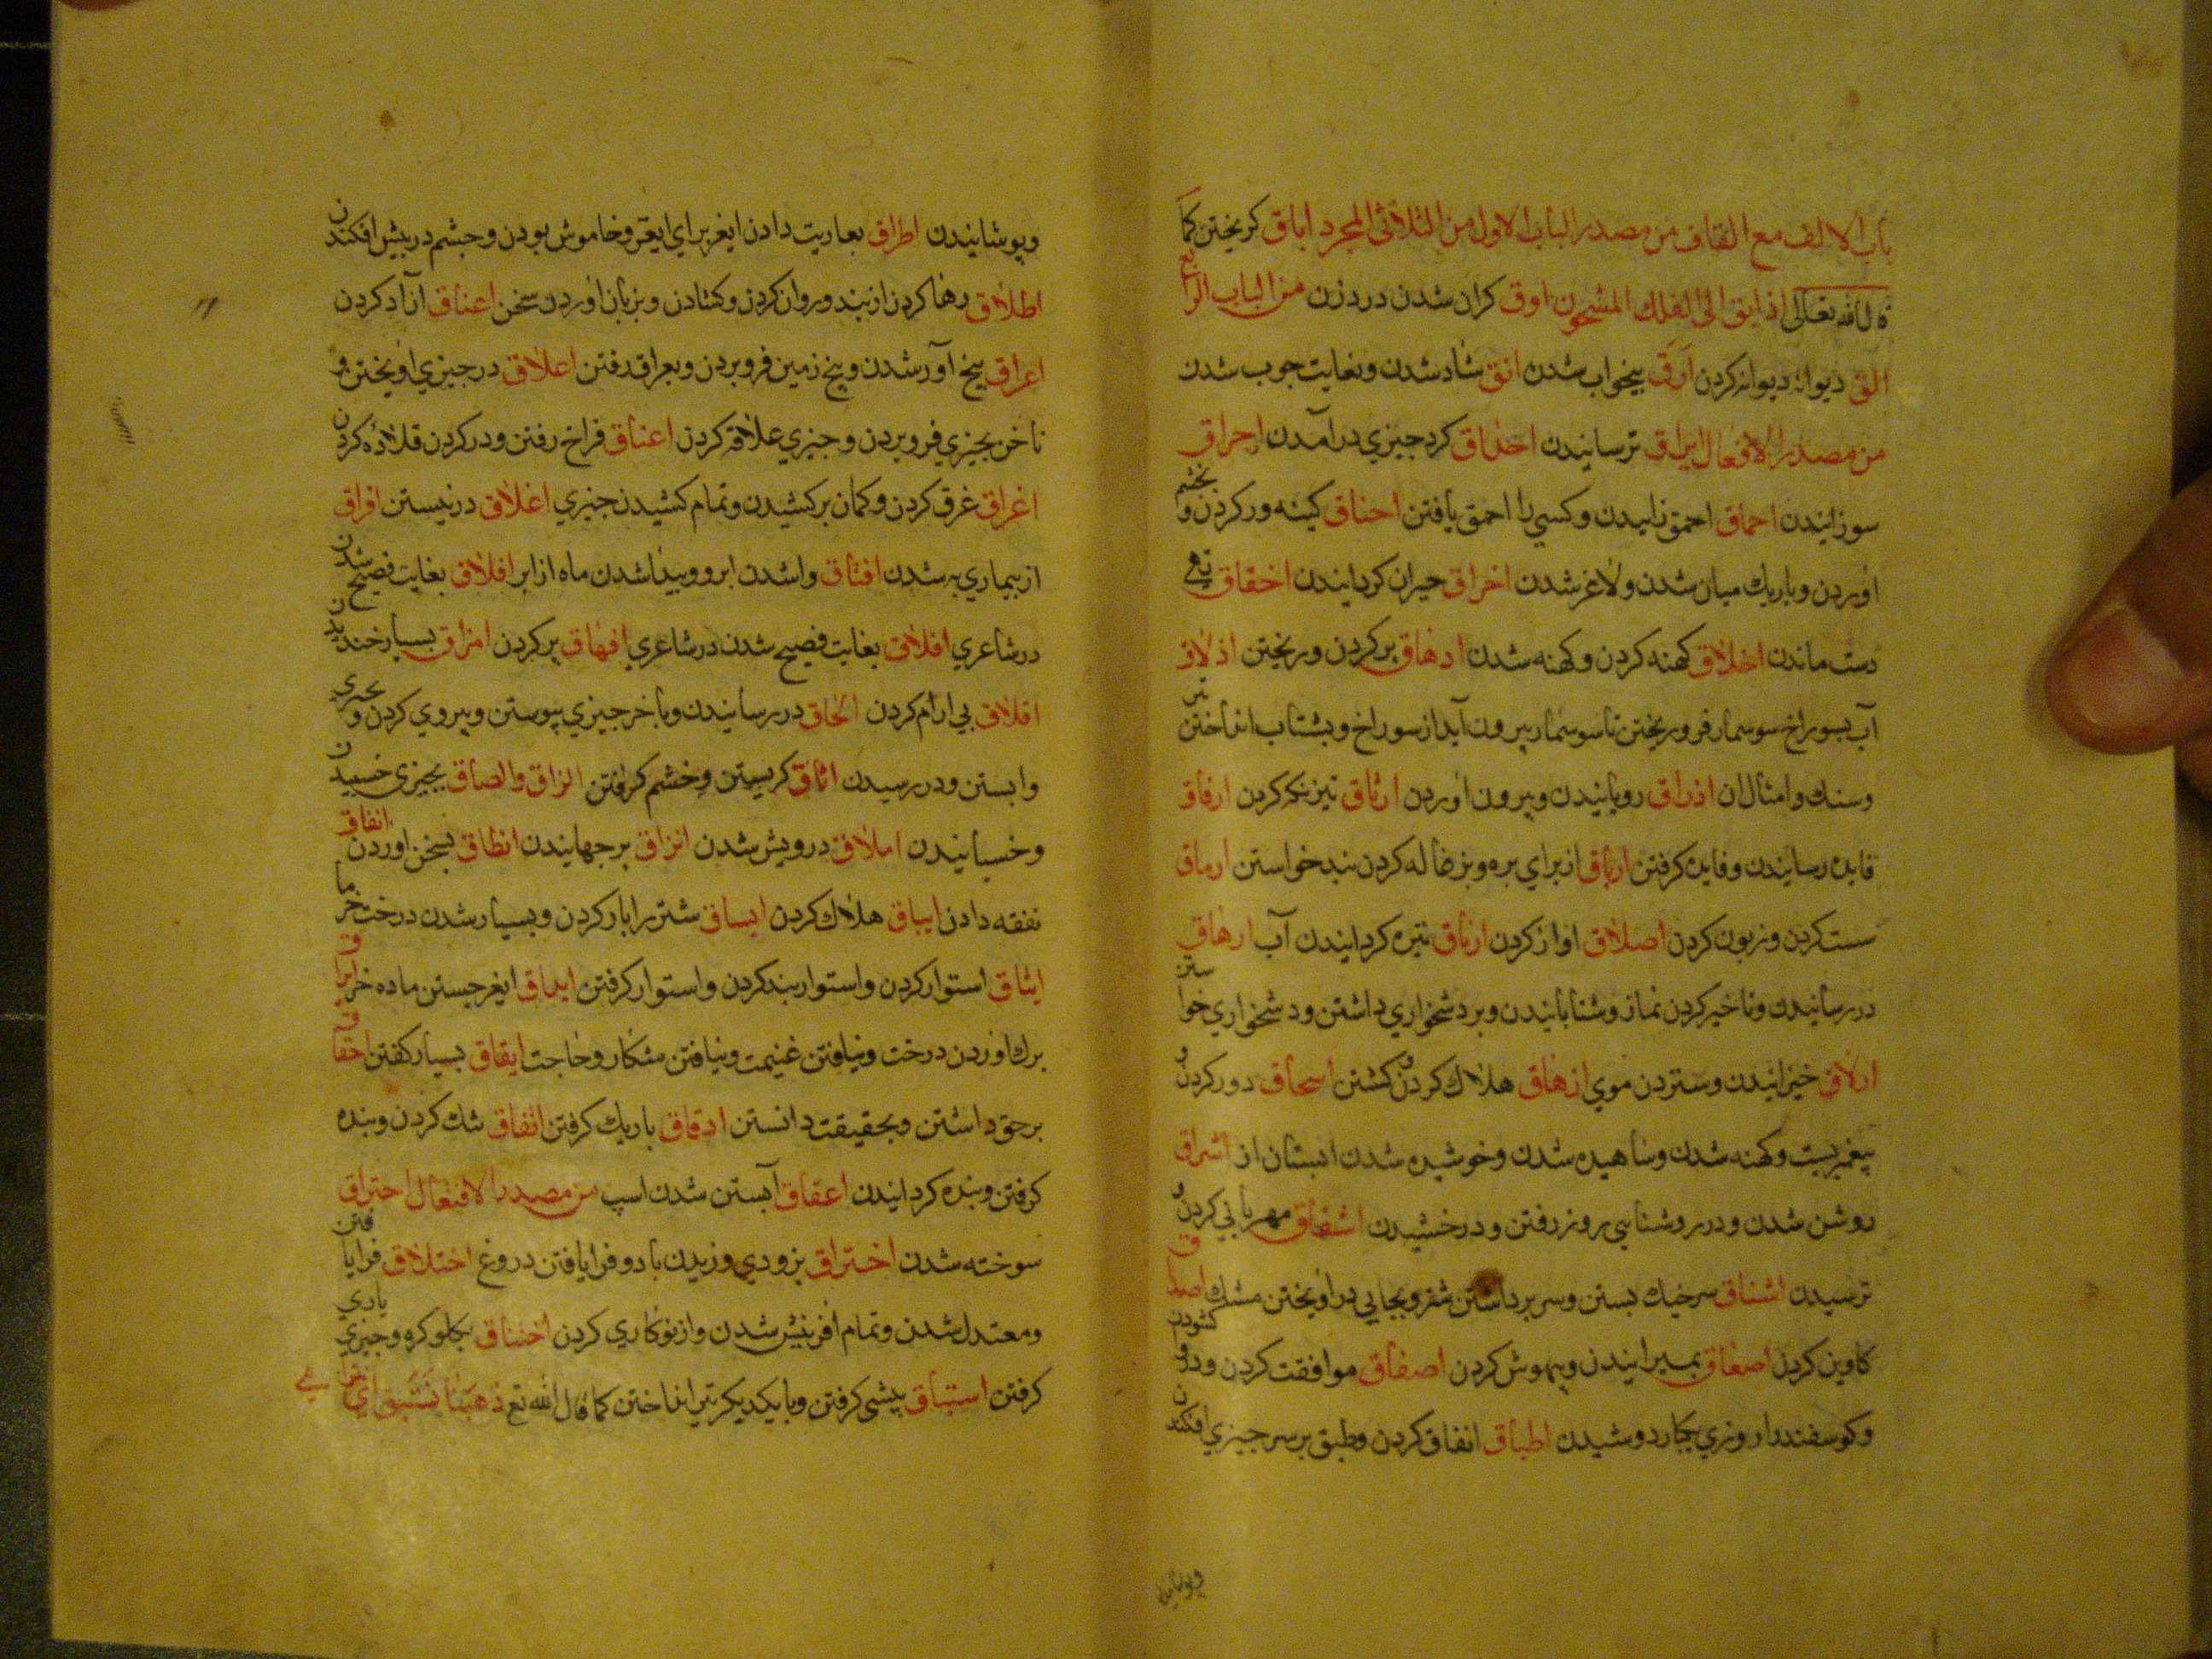 باب الالف مع القاف من مصدر الباب الاول من الثلاثی المجرد اباق کریختن کما
قال الله تعالی اذ ابق الی الفلك المشحون اوق کران شدن در وزن من الباب الرابع
الق دیوانه دیوانه کردن ارق بیخواب شدن انق شاد شدن وبغایت خوب شدن
من مصدر الافعال ابراق ترسانیدن احداق کرد چیزی درآمدن احراق
سوزانیدن احماق احمق زاییدن وکسی را احمق یافتن احناق کینه ور کردن و بخشم
اوردن وباریك میان شدن ولاغر شدن اخراق حیران کردانیدن اخفاق تهی
دست ماندن اخلاق کهنه کردن وکهنه شدن ادهاق بر کردن وریختن اذلاق
آب بسوراخ سوسمار فرو ریختن تا سوسمار بیرون آید از سوراخ وبشتاب انداختن تیر
وسنك وامثال ان اذراق رویانیدن وبیرون اوردن ارتاق تیز نکه کردن ارفاق
فایده رسانیدن وفایده کرفتن ارباق از برای بره وبزغاله کردن بند خواستن ارماق
سست کردن وزبون کردن اصلاق اواز کردن ارناق تیره کردانیدن آب ارهاق
در رسانیدن وتاخیر کردن نماز وشتابانیدن وبر دشخواری داشتن ودشخواری خواستن
ازلاق خیزانیدن وستردن موی ازهاق هلاك کردن و کشتن اسحاق دور کردن و
پیغمبریست وکهنه شدن وساهیده شدن وخوشیده شدن ابستان از اشراق
روشن شدن ودر روشنایی روز رفتن ودرخشیدن اشفاق مهربانی کردن و
ترسیدن اشناق سرخیك بستن وسر برداشتن شتر وبجایی در اویختن مشك اصداق
کاوین کردن اصعاق بمیرانیدن وبیهوش کردن اصفاق موافقت کردن ودر کشودن
وکوسفند را روزی یکبار دوشیدن اطباق اتفاق کردن وطبق بر سر چیزی افکندن
وپوشانیدن
وپوشانیدن اطراق بعاریت دادن ایغر برای ایغر وخاموش بودن وچشم در پیش افکندن
اطلاق رها کردن از بند وروان کردن وکشادن وبزبان اوردن سخن اعتاق آزاد کردن
اعراق بیخ آور شدن وبیخ زمین فرو بردن وبعراق رفتن اعلاق در چیزی اویختن و
ناخن بچیزی فرو بردن وچیزی علاقه کردن اعناق فراخ رفتن ودر کردن قلاده کردن
اغراق غرق کردن وکمان بر کشیدن وتمام کشیدن چیزی اغلاق در بستن افراق
از بیماری به شدن افتاق واشدن ابر وپیدا شدن ماه از ابر افلاق بغایت فصیح شدن
در شاعری افلاق بغایت فصیح شدن در شاعری افهاق پر کردن امزاق بسیار خندیدن
اقلاق بی ارام کردن الحاق در رسانیدن وباخر چیزی پیوستن وپیروی کردن و بچیزی
وابستن ودر رسیدن اثاق کریستن وخشم کرفتن الزاق والصاق بچیزی خسبیدن
وخسبانیدن املاق درویش شدن انزاق بر جهانیدن انطاق بسخن اوردن انفاق
نفقه دادن ایباق هلاك کردن ایساق شتر را بار کردن وبسیار شدن درخت خرما
ایثاق استوار کردن واستوار بند کردن واستوار کرفتن ایداق ایغر جستن ماده خر ایراق
برك اوردن درخت ونیافتن غنیمت ونیافتن شکار وحاجت ایقاق بسیار کفتن احقاق
بر حق داشتن وبحقیقت دانستن ادقاق باریك کرفتن اتفاق شك کردن وبنده
کرفتن وبنده کردانیدن اعقاق آبستن شدن اسپ من مصدر الافتعال احتراق
سوخته شدن اختراق بزودی وزیدن باد وفرا یافتن دروغ اختلاق فرا یافتن
ومعتدل شدن وتمام افرینش شدن واز نو کاری کردن اختناق بکلو کره وچیزی یادی
کرفتن استباق پیشی کرفتن وبایکدیکر تیر انداختن کما قال الله تع ذهبنا نستبق ای